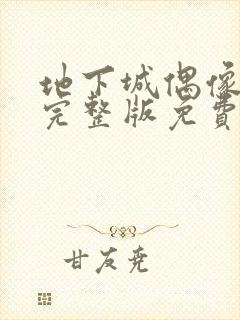 地下城偶像
完整版免费
甘友尧